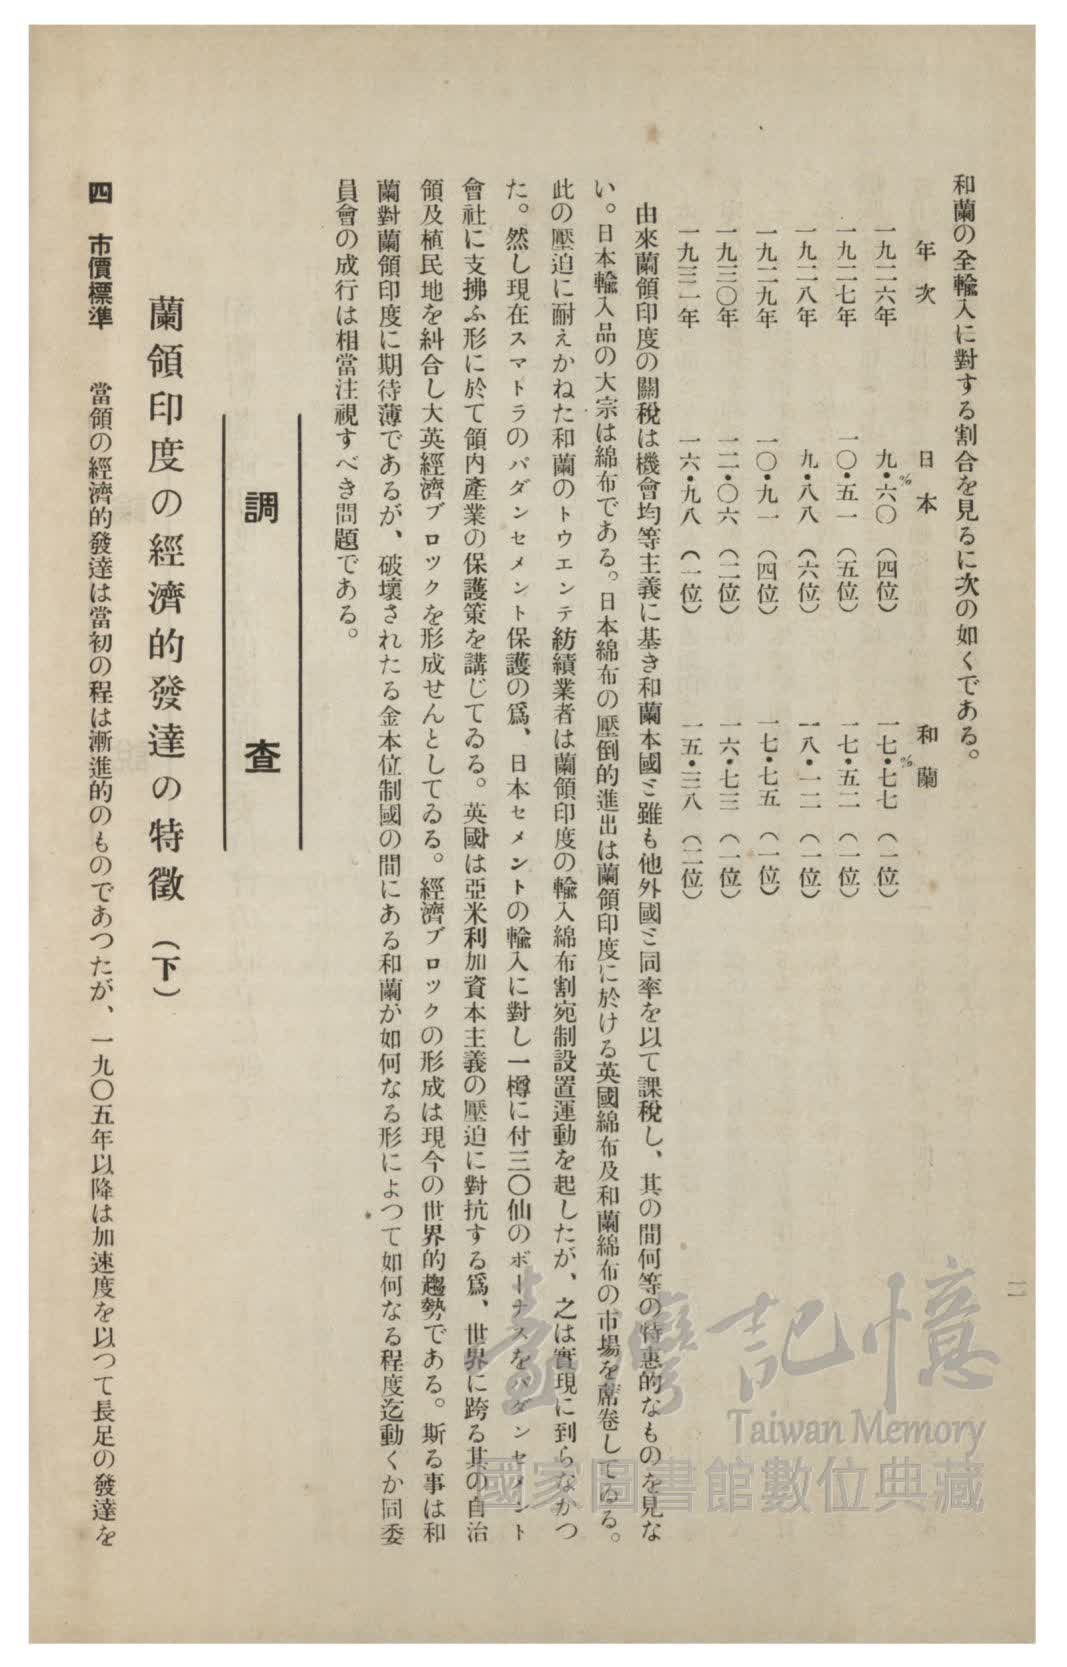 二
和蘭の全輸入に對する割合を見るに次の如くである。
年次 日本 和蘭
一九二六年 九・六〇% (四位) 一七・七七% (一位)
一九二七年 一〇・五一 (五位) 一七・五二 (一位)
一九二八年 九・八八 (六位) 一八・一二 (一位)
一九二九年 一〇・九一 (四位) 一七・七五 (一位)
一九三〇年 一二・〇六 (二位) 一六・七三 (一位)
一九三一年 一六・九八 (一位) 一五・三八 (二位)
由來蘭領印度の關稅は機會均等主義に基き和蘭本國ミ雖も他外國ミ同率を以て課稅し、其の間何等の特惠的なものを見な
い。日本輸入品の大宗は綿布である。日本綿布の壓倒的進出は蘭領印度に於ける英國綿布及和蘭綿布の市場を席卷してゐる。
此の壓迫に耐えかねた和蘭のトウエンテ紡績業者は蘭領印度の輸入綿布割宛制設置運動を起したが、之は實現に到らなかつ
た。然し現在スマトラのパダンセメント保護の爲、日本セメントの輸入に對し一樽に付三〇仙のボーナスをパダンセメント
會社に支拂ふ形に於て領內產業の保護策を講じてゐる。英國は亞米利加資本主義の壓迫に對抗する爲、世界に跨る其の自治
領及植民地を糾合し大英經濟ブロックを形成せんとしてゐる。經濟ブロックの形成は現今の世界的趨勢である。斯る事は和
蘭對蘭領印度に期待薄であるが、破壞されたる金本位制國の間にある和蘭が如何なる形によつて如何なる程度迄動くか同委
員會の成行は相當注視すべき問題である。
調查
蘭領印度の經濟的發達の特徵 (下)
四 市價標準 當領の經濟的發達は當初の程は漸進的のものであつたが、一九〇五年以降は加速度を以つて長足の發達を
臺灣記憶
Taiwan Memory
國家圖書館數位典藏